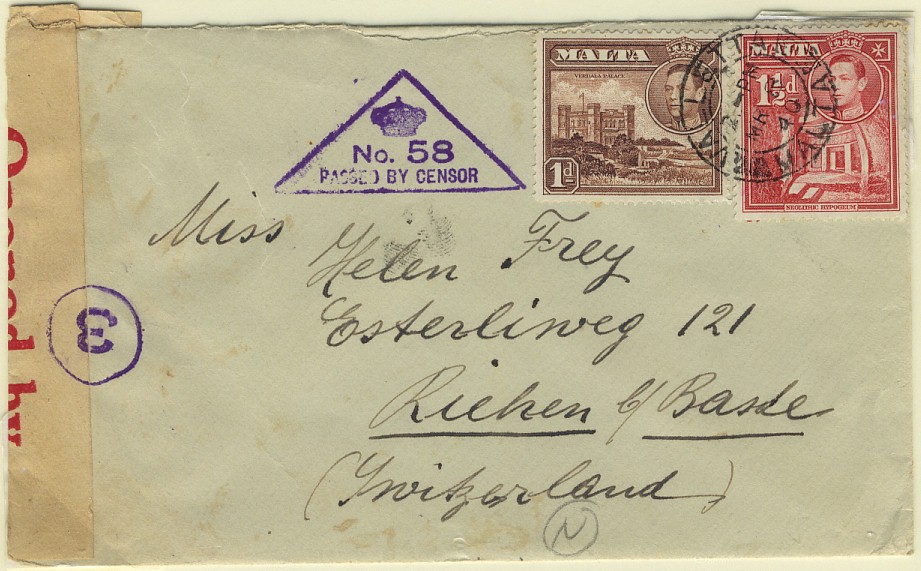 Opened by
3
No. 58
PASSED BY CENSOR
MALTA
VERDALA PALACE
1d
MALTA
1½d
NEOLITHIC HYPOGEUM
Miss
Helen Frey
Esterliweg 121
Riehen b/ Basle
(Switzerland)
N